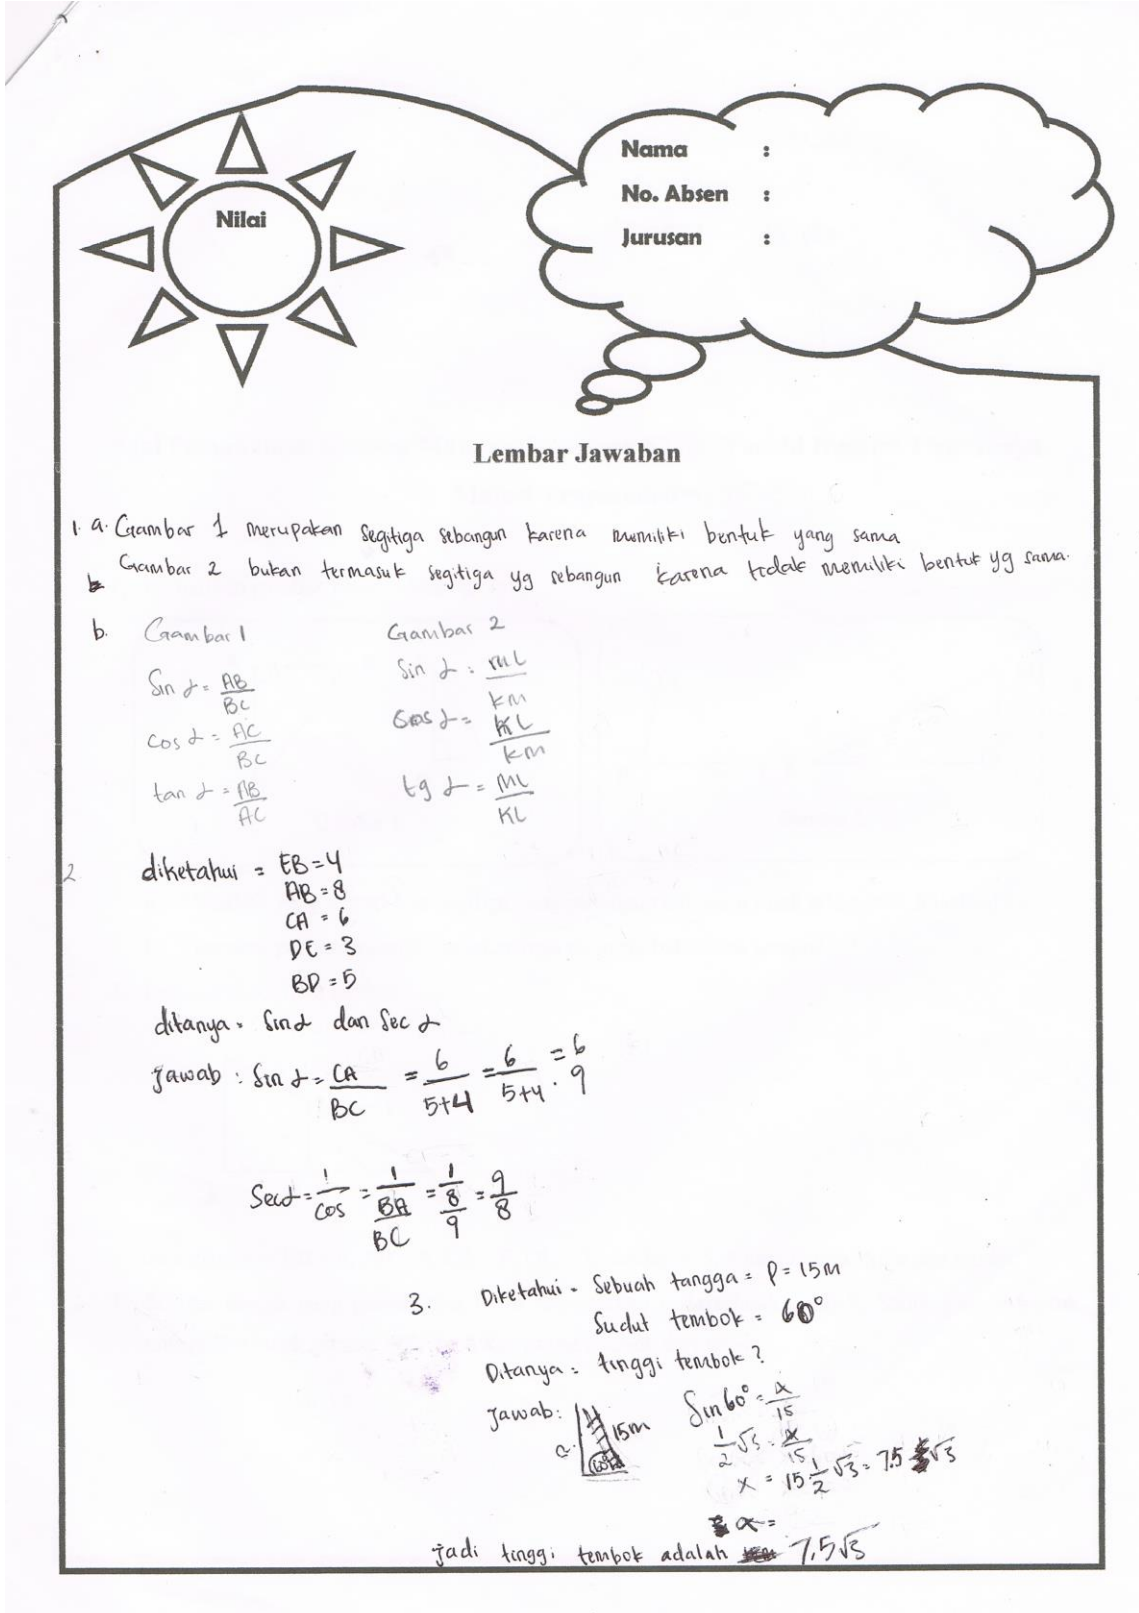 Nilai
Nama :
No. Absen :
Jurusan :
Lembar Jawaban
1. a. Gambar 1 merupakan segitiga sebangun karena memiliki bentuk yang sama
Gambar 2 bukan termasuk segitiga yg sebangun karena tidak memiliki bentuk yg sama.
b. Gambar 1
Sin α = AB/BC
cos α = AC/BC
tan α = AB/AC
Gambar 2
Sin α = ML/KM
Cos α = KL/KM
tg α = ML/KL
2. diketahui = EB = 4
AB = 8
CA = 6
DE = 3
BD = 5
ditanya = Sin α dan Sec α
Jawab : Sin α = CA/BC = 6/5+4 = 6/5+4 = 6/9
Sec α = 1/cos = 1/BA/BC = 1/8/9 = 9/8
3. Diketahui = Sebuah tangga = P = 15m
Sudut tembok = 60°
Ditanya = tinggi tembok ?
Jawab :
15m
60°
Sin 60° = x/15
1/2 √3 = x/15
x = 15 1/2 √3 = 7.5 √3
x =
Jadi tinggi tembok adalah 7,5√3